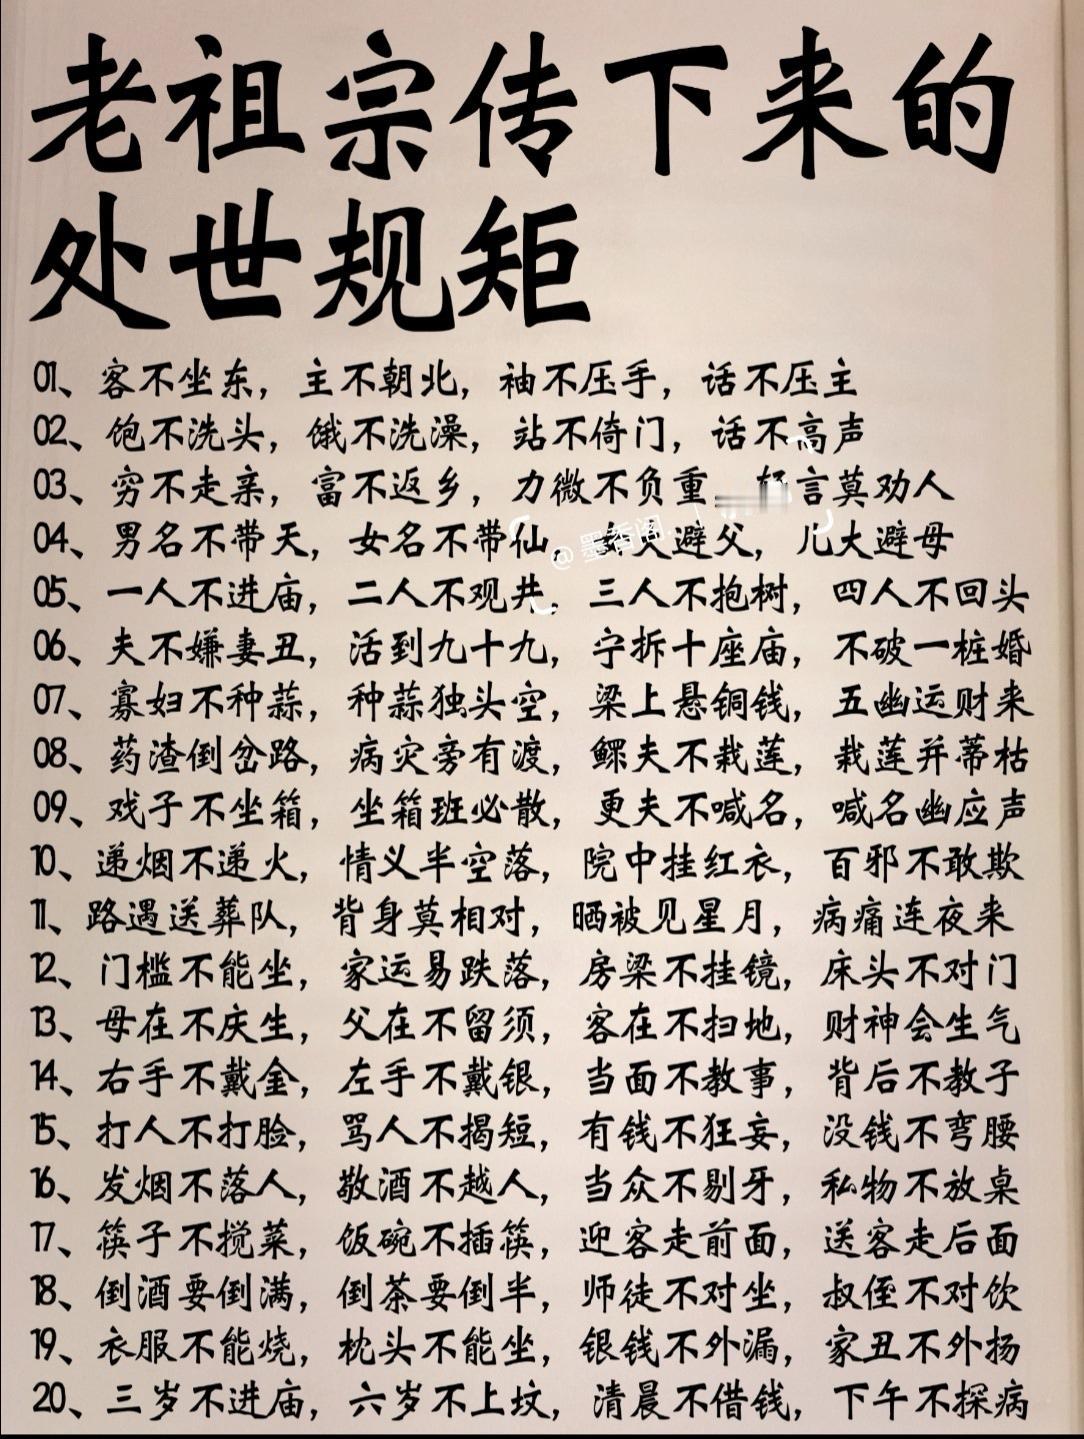 老祖宗传下来的
处世规矩
01、客不坐东，主不朝北，袖不压手，话不压主
02、饱不洗头，饿不洗澡，站不倚门，话不高声
03、穷不走亲，富不返乡，力微不负重，轻言莫劝人
04、男名不带天，女名不带仙，女大避父，儿大避母
@墨香阁.
05、一人不进庙，二人不观井，三人不抱树，四人不回头
06、夫不嫌妻丑，活到九十九，宁拆十座庙，不破一桩婚
07、寡妇不种蒜，种蒜独头空，梁上悬铜钱，五幽运财来
08、药渣倒岔路，病灾旁有渡，鳏夫不栽莲，栽莲并蒂枯
09、戏子不坐箱，坐箱班必散，更夫不喊名，喊名幽应声
10、递烟不递火，情义半空落，院中挂红衣，百邪不敢欺
11、路遇送葬队，背身莫相对，晒被见星月，病痛连夜来
12、门槛不能坐，家运易跌落，房梁不挂镜，床头不对门
13、母在不庆生，父在不留须，客在不扫地，财神会生气
14、右手不戴金，左手不戴银，当面不教事，背后不教子
15、打人不打脸，骂人不揭短，有钱不狂妄，没钱不弯腰
16、发烟不落人，敬酒不越人，当众不剔牙，私物不放桌
17、筷子不搅菜，饭碗不插筷，迎客走前面，送客走后面
18、倒酒要倒满，倒茶要倒半，师徒不对坐，叔侄不对饮
19、衣服不能烧，枕头不能坐，银钱不外漏，家丑不外扬
20、三岁不进庙，六岁不上坟，清晨不借钱，下午不探病